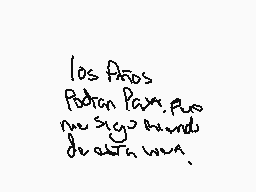 los Años
Podran Pasar. Pero
me sigo riendo
de esta wea.